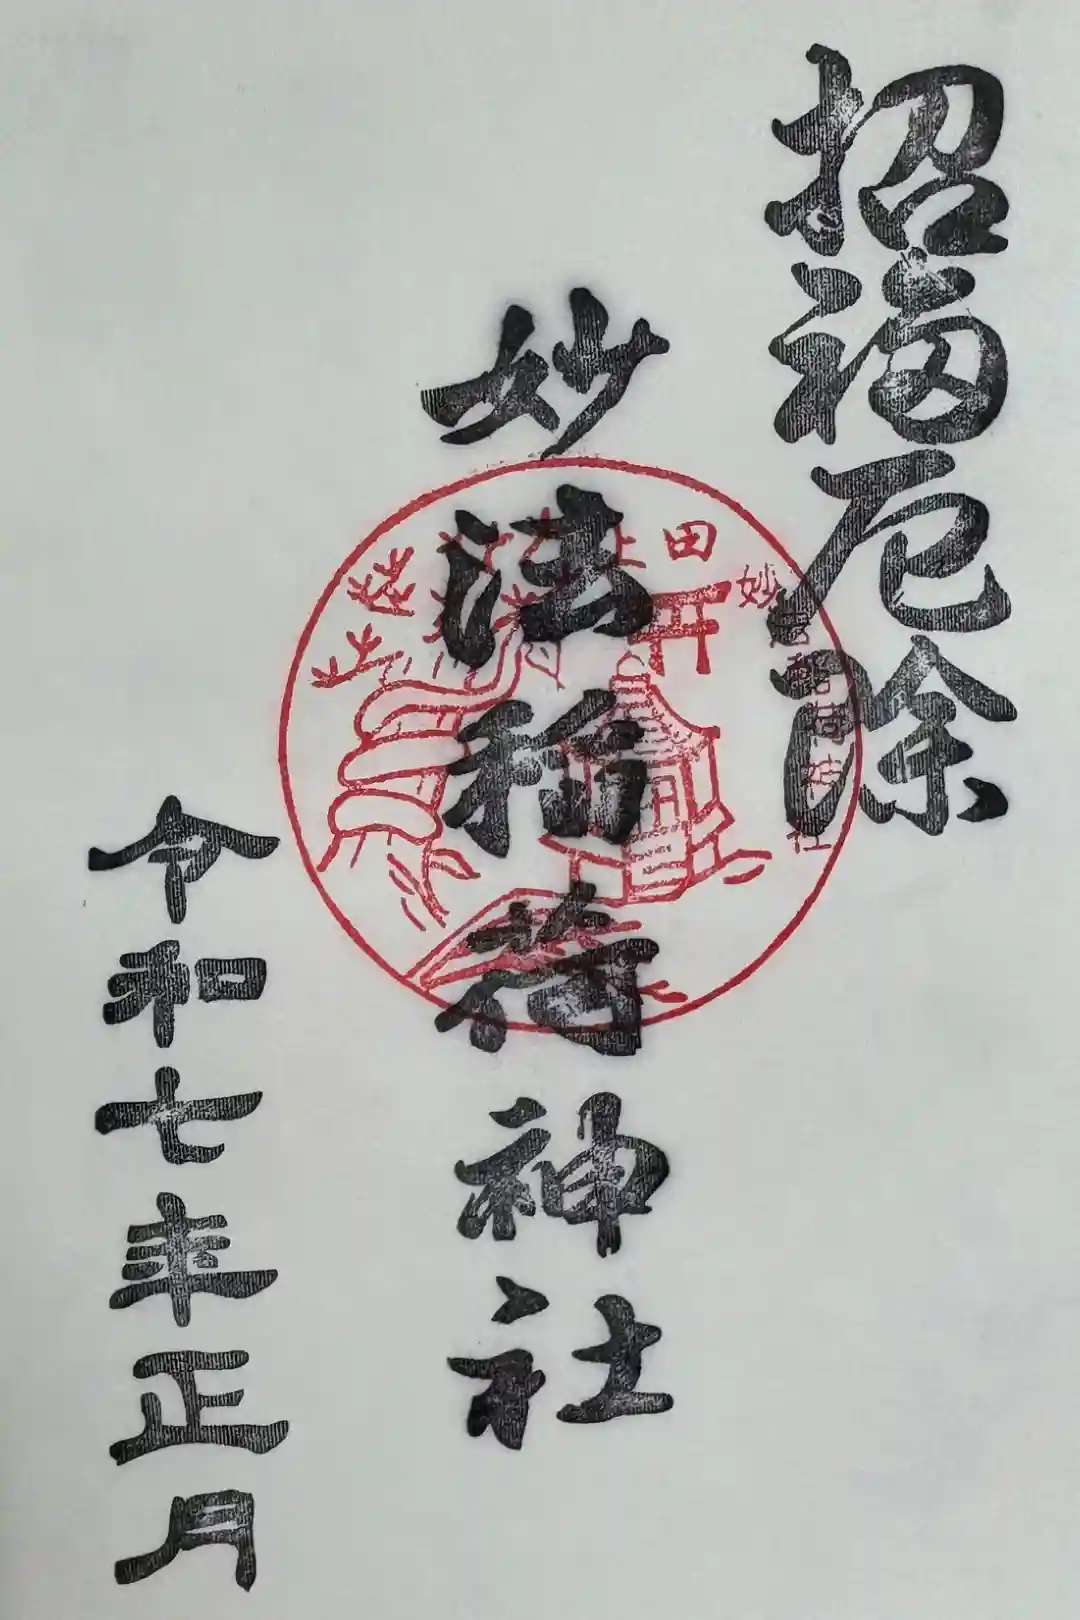 招福厄除
妙法稲荷神社
令和七年正月
田
妙法稲荷神社